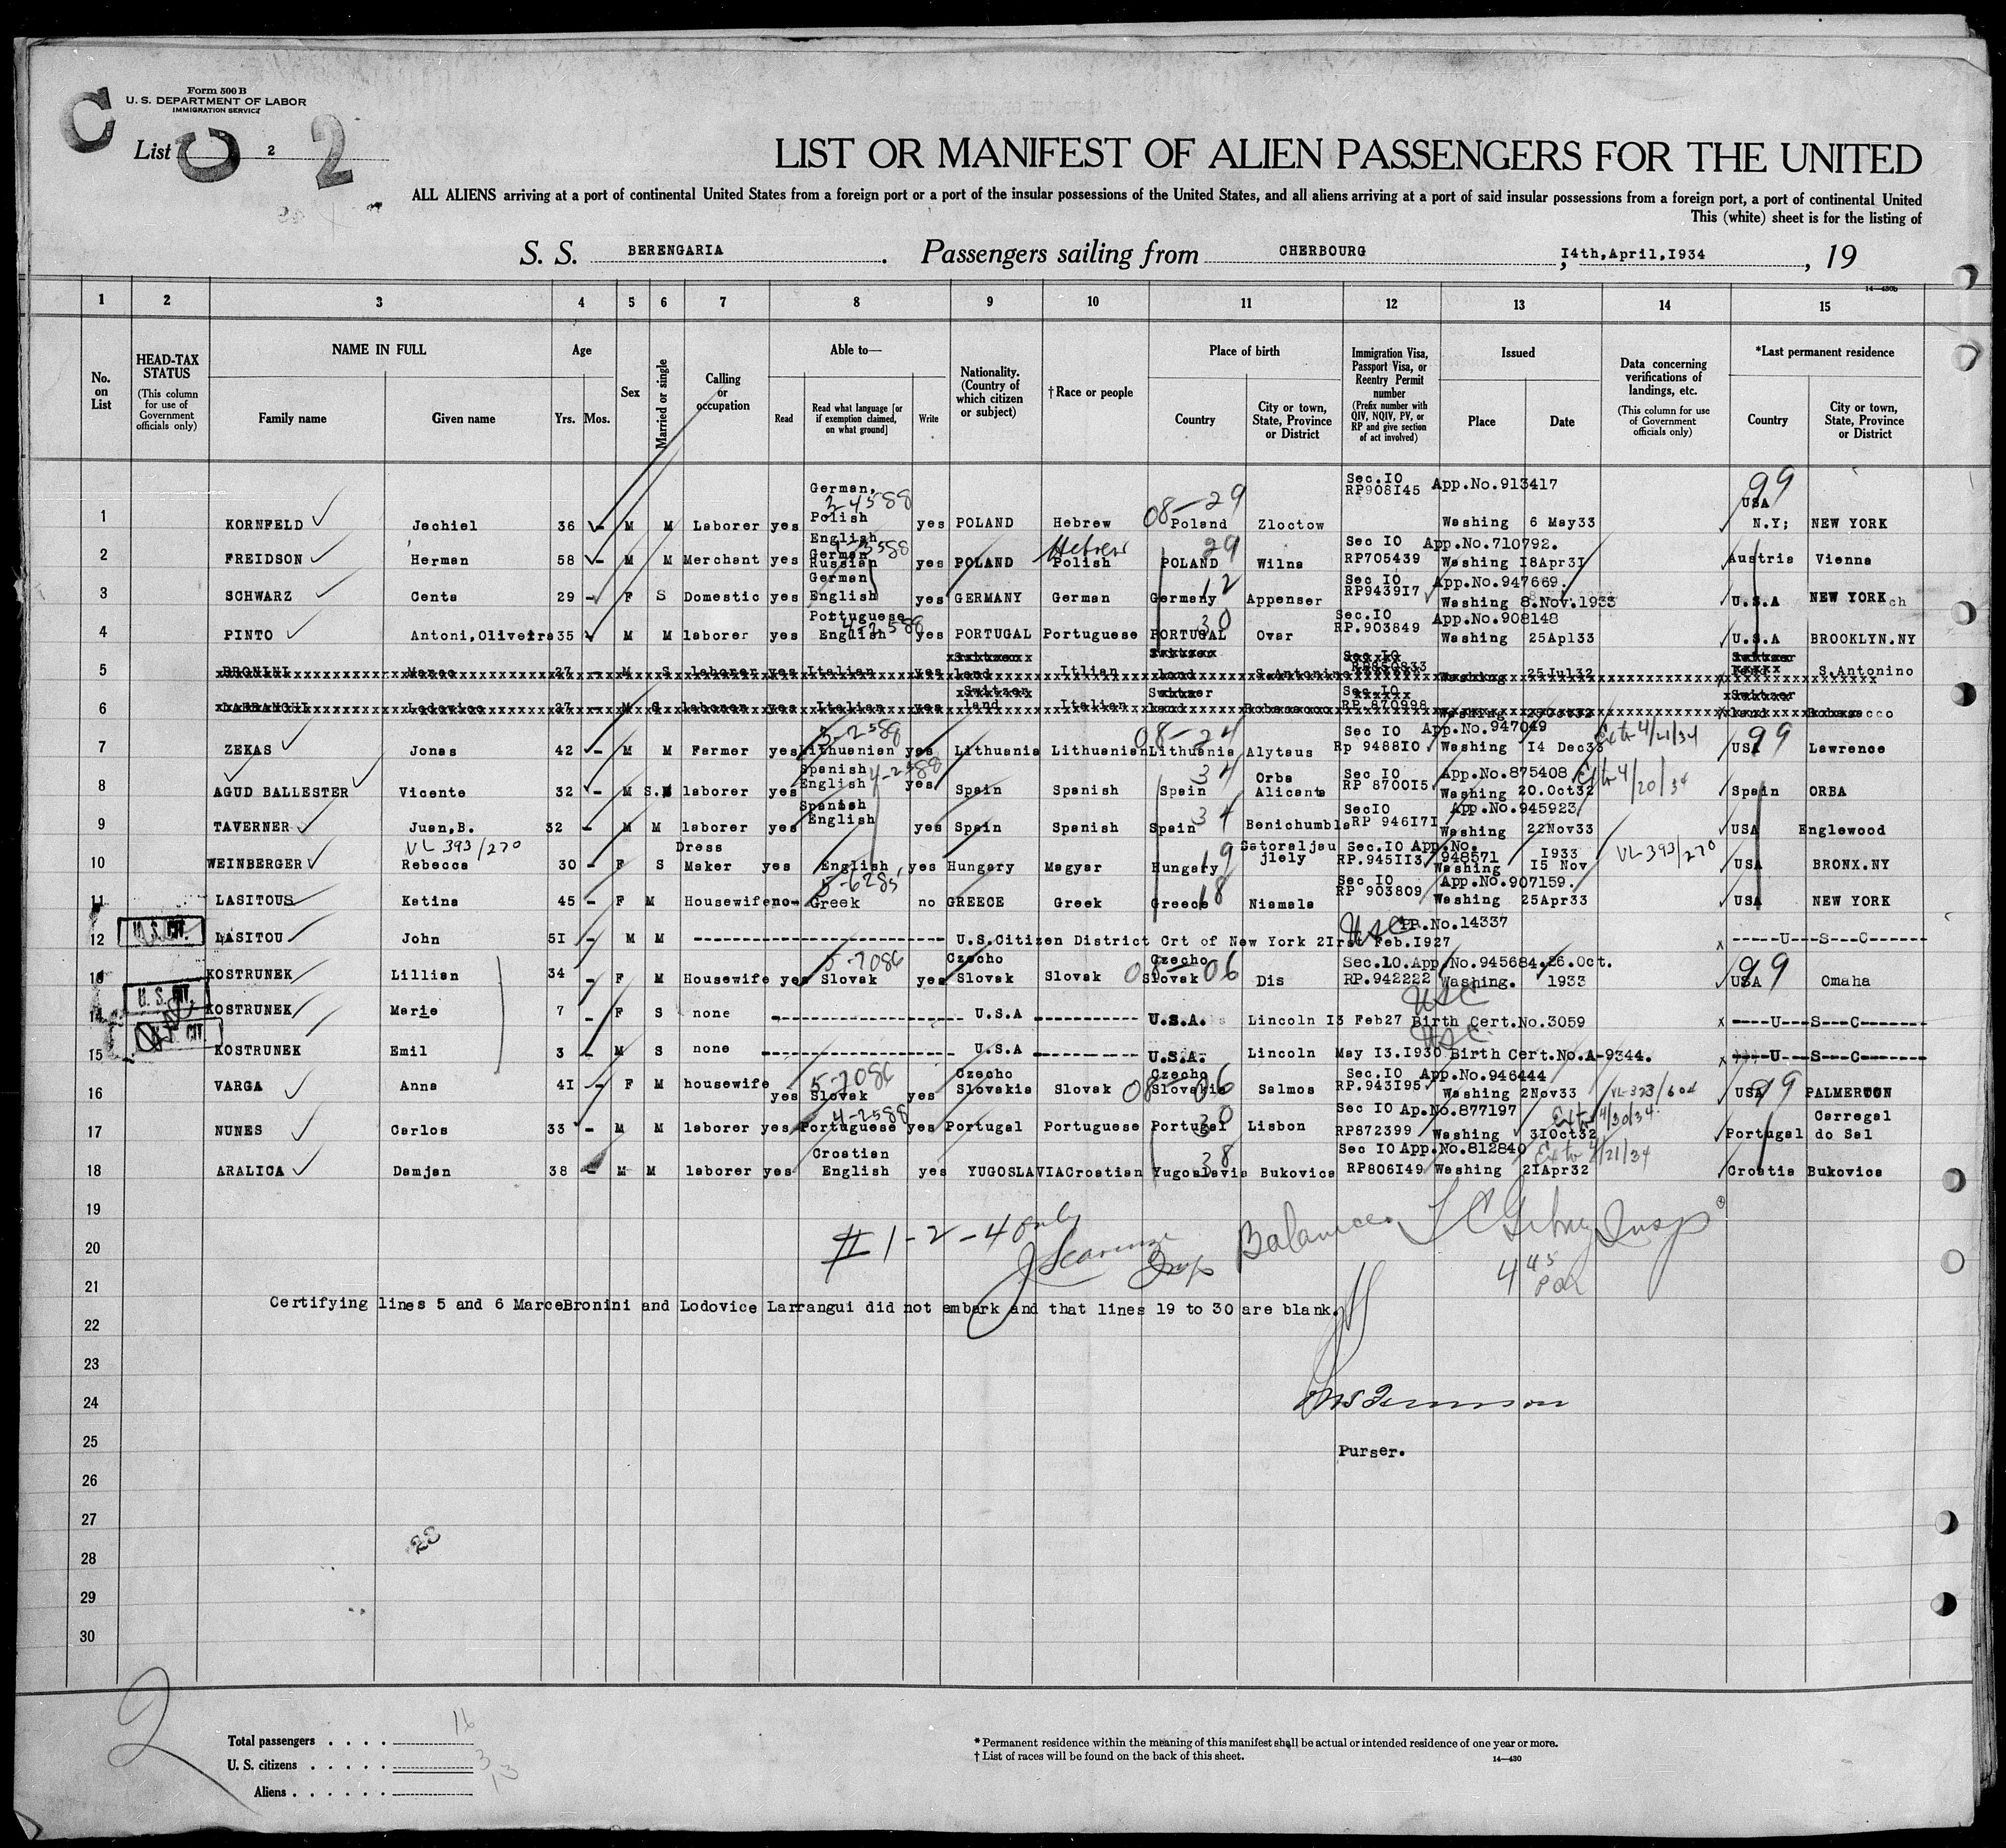 Form 500 B
U. S. DEPARTMENT OF LABOR
IMMIGRATION SERVICE
C
List 2
C 2
LIST OR MANIFEST OF ALIEN PASSENGERS FOR THE UNITED
ALL ALIENS arriving at a port of continental United States from a foreign port or a port of the insular possessions of the United States, and all aliens arriving at a port of said insular possessions from a foreign port, a port of continental United
This (white) sheet is for the listing of
S. S. BERENGARIA . Passengers sailing from CHERBOURG , I4th,April,I934 , 19
14—430b
1 2 3 4 5 6 7 8 9 10 11 12 13 14 15
No. on List
HEAD-TAX STATUS
(This column for use of Government officials only)
NAME IN FULL
Family name Given name
Age
Yrs. Mos.
Sex
Married or single
Calling or occupation
Able to—
Read
Read what language [or if exemption claimed, on what ground]
Write
Nationality. (Country of which citizen or subject)
† Race or people
Place of birth
Country
City or town, State, Province or District
Immigration Visa, Passport Visa, or Reentry Permit number
(Prefix number with QIV, NQIV, PV, or RP and give section of act involved)
Issued
Place Date
Data concerning verifications of landings, etc.
(This column for use of Government officials only)
*Last permanent residence
Country
City or town, State, Province or District
1 KORNFELD Jechiel 36 - M M Laborer yes German, Polish 2-4588 yes POLAND Hebrew 08-29 Poland Zloctow Sec.IO RP908I45 App.No.913417 Washing 6 May33 99 USA N.Y; NEW YORK
2 FREIDSON Herman 58 - M M Merchant yes English German Russian yes POLAND Hebrew Polish 29 POLAND Wilna Sec IO RP705439 App.No.710792. Washing I8Apr3I Austria Vienna
3 SCHWARZ Centa 29 - F S Domestic yes German English yes GERMANY German 12 Germany Appenser Sec IO RP9439I7 App.No.947669. Washing 8.Nov.1933 U.S.A NEW YORK
4 PINTO Antoni,Oliveira 35 M M laborer yes Portuguese English 4-2588 yes PORTUGAL Portuguese 30 PORTUGAL Ovar Sec.IO RP.903849 App.No.908148 Washing 25Apl33 U.S.A BROOKLYN.NY
5 BRONINI 27 - M S laborer yes Italian yes land Itlian land S.Antonino Sec IO Washing 25Jul32 S.Antonino
6 Lodovico 27 - M S laborer yes Italian yes Switzer land Italian Switzer land Sec.IO RP 870998 Washing
7 ZEKAS Jonas 42 - M M Farmer yes Lithuanian 5-2588 yes Lithuania Lithuanian 08-24 Lithuania Alytaus Sec IO Rp 9488IO App.No.947049 Washing I4 Dec33 Ext to 4/21/34 99 USA Lawrence
8 AGUD BALLESTER Vicente 32 - M S. laborer yes Spanish English 4-2588 yes Spain Spanish 34 Spain Orba Alicante Sec IO RP 8700I5 App.No.875408 Washing 20.Oct32 Ext to 4/20/34 Spain ORBA
9 TAVERNER Juan,B. 32 - M M laborer yes Spanish English yes Spain Spanish 34 Spain Benichumbla SecIO RP 946I7I App.No.945923 Washing 22Nov33 USA Englewood
VL 393/270
10 WEINBERGER Rebecca 30 - F S Dress Maker yes English yes Hungary Magyar 19 Hungary Satoraljau jlely Sec.IO RP.945II3 App.No. 948571 Washing I933 I5 Nov VL-393/270 USA BRONX.NY
11 LASITOUS Katina 45 - F M Housewife no- Greek 5-6285 no GREECE Greek 18 Greece Niamala Sec IO RP 903809 App.No.907159. Washing 25Apr33 USA NEW YORK
12 U.S. CIT. LASITOU John 5I - M M ------ U.S.Citizen District Crt of New York 2Irst Feb.I927 USC PR.No.14337 x -----U---S---C------
13 KOSTRUNEK Lillian 34 - F M Housewife yes Slovak 5-7086 yes Czecho Slovak Slovak 08-06 Czecho Slovak Dis Sec.IO. RP.942222 App.No.945684.26.Oct. Washing. 1933 99 USA Omaha
14 U.S. CIT. KOSTRUNEK Marie 7 - F S none ------ U.S.A ------ U.S.A. Lincoln I3 Feb27 Birth Cert.No.3059 USC x ----U---S---C------
15 U.S. CIT. KOSTRUNEK Emil 3 - M S none ------ U.S.A ------ U.S.A. Lincoln May I3.I930 Birth Cert.No.A-9344. USC x ----U---S---C------
16 VARGA Anna 4I - F M housewife yes Slovak 5-7086 yes Czecho Slovakia Slovak 08-06 Czecho Slovakia Salmos Sec.IO RP.943I95 App.No.946444 Washing 2Nov33 VL-393/604 USA 99 PALMERTON
17 NUNES Carlos 33 - M M laborer yes Portuguese 4-2588 yes Portugal Portuguese 30 Portugal Lisbon Sec IO RP872399 Ap.No.877197 Washing 3IOct32 Ext to 4/30/34 Portugal Carregal do Sal
18 ARALICA Damjan 38 - M M laborer yes Croatian English yes YUGOSLAVIA Croatian 38 Yugoslavia Bukovica Sec IO RP806I49 App.No.812840 Washing 2IApr32 Ext to 4/21/34 Croatia Bukovica
19
20 # 1-2-4 only Insp Balance Insp
21 4 45 PM
Certifying lines 5 and 6 MarcoBronini and Lodovico Larrangui did not embark and that lines 19 to 30 are blank.
22
23
24
25 Purser.
26
27
28
29
30
2
Total passengers . . . . 16
U. S. citizens . . . . . 3
Aliens . . . . . . 13
* Permanent residence within the meaning of this manifest shall be actual or intended residence of one year or more.
† List of races will be found on the back of this sheet.
14—430